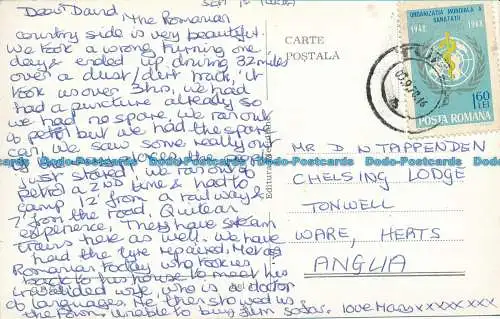 SEPT
Dear David, The Romanian
country side is very beautiful.
We took a wrong turning one
day & ended up driving 32 miles
over a dust/dirt track, it
took us over 3 hrs, we had
had a puncture already so
we had no spare. We ran out
of petrol but we had the spare
can. We saw some really out
just stared. We ran out of
petrol a 2ND time & had to
camp 12' from a railway &
7' from the road. Quite an
experience, They have steam
trains here as well. We have
had the tyre repaired. Met a
Romanian today who took us
back to his house to meet his
wife who is a doctor
of languages. He then showed us
the farm. Unable to buy film so far. love Mars xxxxxxxx
CARTE
POȘTALĂ
Editura
ORGANIZATIA MONDIALA A
SANATATII
1948 1968
1,60
LEI
POSTA ROMANA
MR D N TAPPENDEN
CHELSING LODGE
TONWELL
WARE, HERTS
ANGLIA
Dodo-Postcards Dodo-Postcards Dodo-Postcards Dodo-Postcards Dodo-Postcards